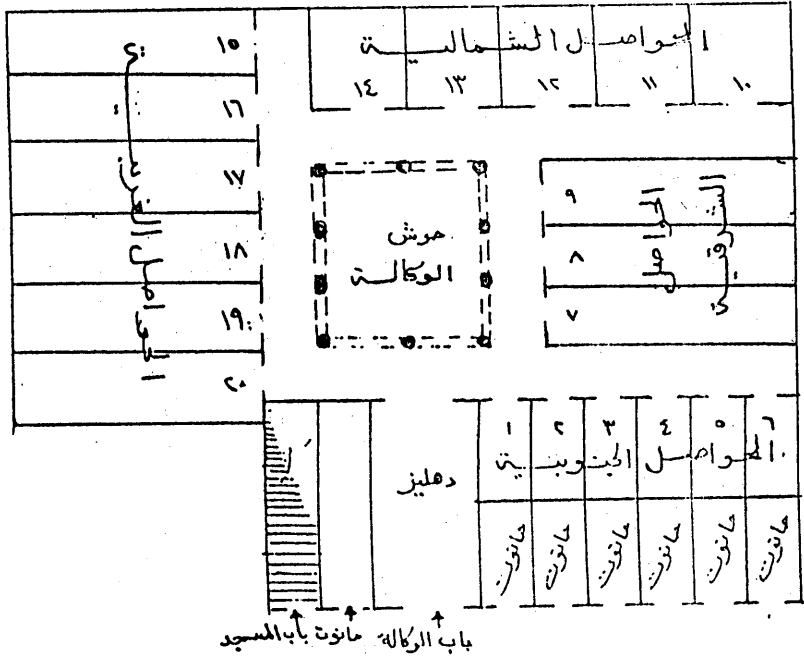 الحواصل الشمالية
١٤ ١٣ ١٢ ١١ ١٠
١٥
١٦
١٧
١٨
١٩
٢٠
الحواصل الغربية
حوش
الوكالة
٩
٨
٧
الحواصل
الشرقية
١ ٢ ٣ ٤ ٥ ٦
الحواصل الجنوبية
دهليز
حانوت حانوت حانوت حانوت حانوت حانوت
باب الوكالة
حانوت
باب المسجد